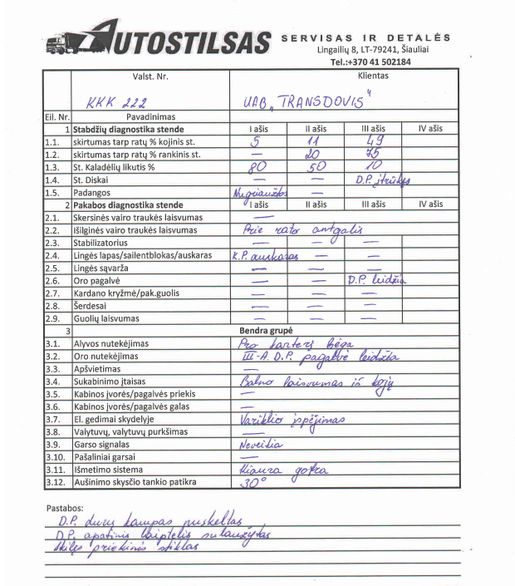 AUTOSTILSAS SERVISAS IR DETALĖS
Lingailių 8, LT-79241, Šiauliai
Tel.:+370 41 502184
Valst. Nr. Klientas
KKK 222 UAB „TRANSDOVIS"
Eil. Nr. Pavadinimas
1 Stabdžių diagnostika stende I ašis II ašis III ašis IV ašis
1.1. skirtumas tarp ratų % kojinis st. 5 11 49
1.2. skirtumas tarp ratų % rankinis st. — 20 75
1.3. St. Kaladėlių likutis % 80 50 10
1.4. St. Diskai — — D.P. įtrūkęs
1.5. Padangos — — —
2 Pakabos diagnostika stende I ašis II ašis III ašis IV ašis
2.1. Skersinės vairo traukės laisvumas —
2.2. Išilginės vairo traukės laisvumas Prie rato antgalis
2.3. Stabilizatorius — — —
2.4. Lingės lapas/sailentblokas/auskaras K.P. auskaras — —
2.5. Lingės sąvarža — — —
2.6. Oro pagalvė — — D.P. leidžia
2.7. Kardano kryžmė/pak.guolis — — —
2.8. Šerdesai — — —
2.9. Guolių laisvumas — — —
3 Bendra grupė
3.1. Alyvos nutekėjimas Pro karterį bėga
3.2. Oro nutekėjimas III-A. D.P. pagalvė leidžia
3.3. Apšvietimas —
3.4. Sukabinimo įtaisas Balno laisvumas iš kojų
3.5. Kabinos įvorės/pagalvės priekis —
3.6. Kabinos įvorės/pagalvės galas —
3.7. El. gedimai skydelyje Variklio įspėjimas
3.8. Valytuvų, valytuvų purkšimas —
3.9. Garso signalas Neveikia
3.10. Pašaliniai garsai —
3.11. Išmetimo sistema Kiaura gofra
3.12. Aušinimo skysčio tankio patikra 30°
Pastabos:
D.P. durų kampas nuskeltas
D.P. apatinis laiptelis sulaužytas
Skilęs priekinis stiklas